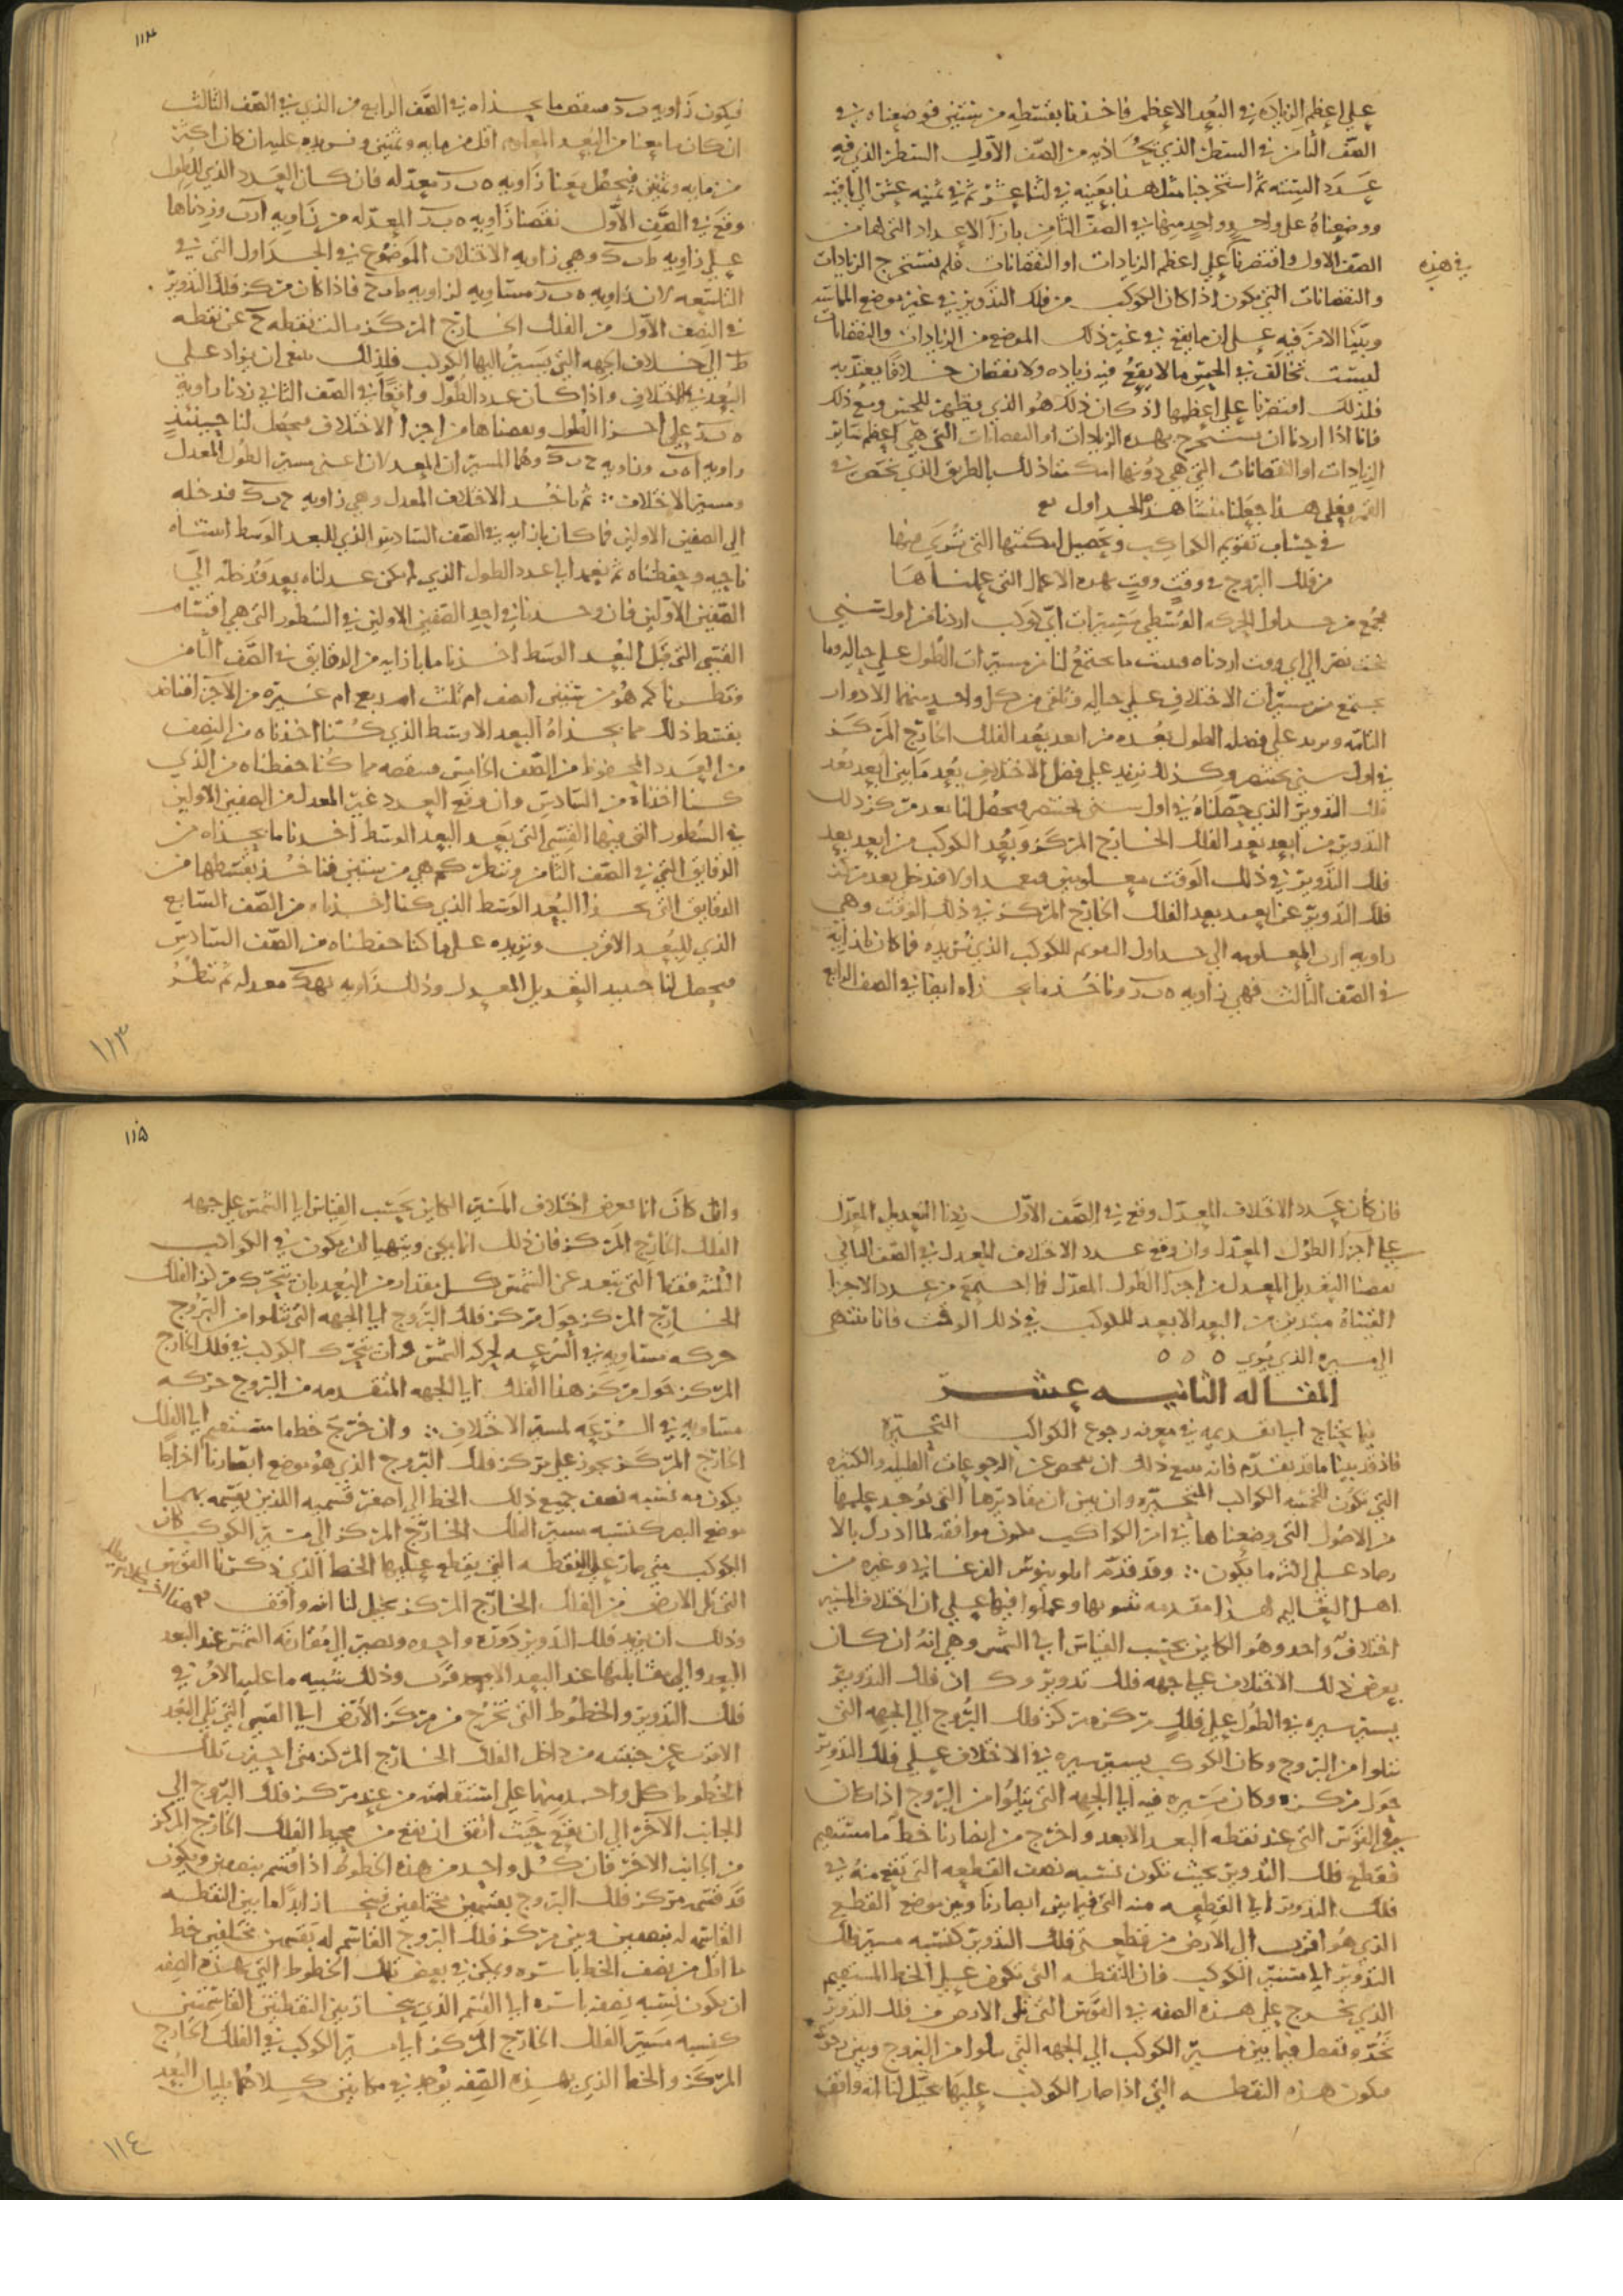 علي اعظم الزياده في البُعد الاعظم فاخذنا بقسطه من ستين فوضعناه في
الصف الثامن في السطر الذي يُحاذيه من الصف الاول السطر الذي فيه
عدد الستة ثم استخرجنا مثل هذا بعينه في اثنا عشر ثم في ثمنيه عشر الي باقيه
ووضعناهُ علي واحدٍ واحدٍ منها في الصف الثامن بازآ الاعداد التي لها من
الصف الاول واقتصرنا علي اعظم الزيادات او النقصانات فلم نستخرج الزيادات
في هذه
والنقصانات التي تكون اذا كان الكوكب من فلك التدوير في غير موضع المماسه
وبيّنا الامر فيه علي ان ما يقع في غير ذلك الموضع من الزيادات والنقصانات
ليست تخالف في الحِس ما لا يقع فيه زياده ولا نقصان خلافًا يعتد به
فلذلك اقتصرنا علي اعظمها اذ كان ذلك هو الذي يظهر للحس ومع ذلك
فانا اذا اردنا ان نستخرج بهذه الزيادات او النقصانات التي هي اعظم سائر
الزيادات او النقصانات التي هي دونها امكننا ذلك بالطريق الذي يختص في
القمر فعلي هذا جعلنا منشا هذه الجداول
في حساب تقويم الكواكب وتحصيل امكنتها التي تُري فيها
من فلك البروج في وقتٍ وقتٍ بهذه الاعمال التي عملناها
نجمع من جداول الحركه الوسطي مسيرات ايّ كوكب اردنا من اول سني
بخت نصر الي اي وقت اردناه ونثبت ما يجتمع لنا من مسيرات الطول علي حياله وما
يجتمع من مسيرات الاختلاف علي حياله ونلقي من كل واحدٍ منهما الادوار
التامه ونزيد علي فضله الطول بُعده من ابعد بُعد الفلك الخارج المركز
في اول سني بختنصر وكذلك نزيد علي فضل الاختلاف بُعد ما بين ابعد بُعد
فلك التدوير الذي حصّلناهُ في اول سني بختنصر فيحصُل لنا بعد مركز ذلك
التدوير من ابعد بعد الفلك الخارج المركز وبُعد الكوكب من ابعد بعد
فلك التدوير في ذلك الوقت معلومين فنعمد اولا فندخل بعد مركز
فلك التدوير عن ابعد بعد الفلك الخارج المركز في ذلك الوقت وهي
زاويه المعلومه الي جداول التقويم للكوكب الذي نريده فما كان بازايه
في الصف الثالث فهي زاويه وناخُذ ما بحذاه ايضا في الصف الرابع
١١٤
فيكون زاويه منقص ما بحذاه في الصف الرابع من الذي في الصف الثالث
ان كان ما معنا من البُعد المعلوم اقل من مايه وثمنين ونزيده عليه ان كان اكثر
من مايه وثمنين فيحصُل معنا زاويه معدّله فان كان العدد الذي للطول
وقع في الصف الاول نقصنا زاويه المعدّله من زاويه وزدناها
علي زاويه وهي زاويه الاختلاف الموضوع في الجداول التي في
التاسعه لان زاويه مساويه لزاويه فاذا كان مركز فلك التدوير
في النصف الاول من الفلك الخارج المركز مالت نقطه عن نقطه
ط الي خلاف الجهه التي يسير اليها الكوكب فلذلك ينبغي ان يزاد علي
البُعد في الاختلاف واذا كان عدد الطول واقعًا في الصف الثاني زدنا زاويه
علي اجزا الطول ونقصناها من اجزا الاختلاف فيحصُل لنا حينئذٍ
زاويه وزاويه وهما المسيران المعدلان اعني مسير الطول المعدل
ومسير الاختلاف ∴ ثم ناخُذ الاختلاف المعدل وهي زاويه فندخله
الي الصفين الاولين فما كان بازايه في الصف السادس الذي للبعد الوسط اثبتناه
ناحيه وحفظناه ثم نعمد ايا عدد الطول الذي لم يكن عدلناه بعد فندخله الي
الصفين الاولين فان وجدناه في احد الصفين الاولين في السُطور التي هي اقسام
القسي التي قبل البُعد الوسط اخذنا ما بازايه من الدقايق في الصف الثامن
ونظرنا كم هو من ستين انصف ام ثلث ام ربع ام غيره من الاجزا فناخذ
بقسط ذلك مما بحذاه البعد الاوسط الذي كُنّا اخذناه من النصف
من العدد المحفوظ من الصف الخامس فننقصه مما كُنا حفظناه من الذي
كنا اخذناه من السادس وان وقع العدد غير المعدل من الصفين الاولين
في السُطور التي فيها القسي التي بعد البعد الوسط اخذنا ما بحذاه من
الدقايق التي في الصف الثامن وننظر كم هي من ستين فناخُذ بقسطها من
الدقايق التي بحذا البُعد الوسط الذي كنا اخذناه من الصف السابع
الذي للبُعد الاقرب ونزيده علي ما كنا حفظناه من الصف السادس
فيحصل لنا حينيذ التعديل المعدل وذلك زاويه معدله ثم ننظر
١١٣
فان كان عدد الاختلاف المعدّل وقع في الصف الاول زدنا التعديل المعدّل
علي اجزا الطول المعدّل وان وقع عدد الاختلاف المعدل في الصف الثاني
نقصنا التعديل المعدل من اجزا الطول المعدّل فما اجتمع من عدد الاجزا
القيناهُ مبتدين من البعد الابعد للكوكب في ذلك الوقت فانا ننتهي
الي مسيره الذي يُري ٥ ٥ ٥
المقاله الثانيه عشر
فيما يحتاج ايا تقديمه في معرفه رجوع الكواكب المتحيّره
فاذ قد بينا ما قد تقدّم فانه يتبع ذلك ان نفحص عن الرجوعات القليله والكثيره
التي تكون للخمسه الكواكب المتحيّره وان نبين ان مقاديرها التي يُوجد علمها
من الاصُول التي وضعناها في امر الكواكب تكون موافقه لما ادرك بالا
رصاد علي اكثر ما يكون ∴ وقد قدّم ابلونيوس الفرغاني وغيره من
اهل التعاليم لهذا مقدمه نسوبها وعملوا فيها علي ان اختلاف المسير
اختلافٌ واحد وهُو الكاين بحسب القياس ايا الشمس وهي انهُ ان كان
يعرض ذلك الاختلاف علي جهه فلك تدوير وكان فلك التدوير
يسير سيره في الطول علي فلكٍ مركزه مركز فلك البرُوج الي الجهه التي
تتلوا من البروج وكان الكوكب يسير سيره في الاختلاف علي فلك التدوير
حول مركزه وكان مسيره فيه ايا الجهه التي تتلُوا من البروج اذا كان
في القوس التي عند نقطه البعد الابعد واخرج من ابصارنا خطٌ مستقيم
فقطع فلك التدوير بحيث تكون نسبه نصف القطعه التي تقع منهُ في
فلك التدوير ايا القطعه منه التي فيما بين ابصارنا وبين موضع القطع
الذي هُو اقرب الي الارض من قطعتي فلك التدوير كنسبه مسير فلك
التدوير ايا مسير الكوكب فان النقطه التي تكون علي الخط المستقيم
الذي يخرج علي هذه الصفه في القوس التي تلي الارض من فلك التدوير
تحُد وتفصل فيما بين مسير الكوكب الي الجهه التي تتلوا من البروج وبين رجوعه
فتكون هذه النقطه التي اذا صار الكوكب عليها يخيّل لنا انه واقف
١١٥
وان كان انما يعرض اختلاف المسير الكاين بحسب القياس ايا الشمس علي جهه
الفلك الخارج المركز فان ذلك انما يمكن ويتهيا ان يكون في الكواكب
الثلثه فقط التي تبعد عن الشمس كل مقدار من البُعد بان يتحرك مركز الفلك
الخارج المركز حول مركز فلك البروج ايا الجهه التي تتلوا من البروج
حركه مساويه في السُرعه لحركه الشمس وان يتحرّك الكوكب في فلك الخارج
المركز حول مركز هذا الفلك ايا الجهه المتقدمه من البروج حركه
متساويه في السُرعه لمسير الاختلاف ∴ وان خرج خط ما مستقيم ايا الفلك
الخارج المركز يجوز علي مركز فلك البروج الذي هُو موضع ابصارنا اخراجا
يكون به نسبه نصف جميع ذلك الخط الي اصغر قسميه اللذين يقسمه بهما
موضع البصر كنسبه مسير الفلك الخارج المركز الي مسير الكوكب كان
الكوكب متي صار علي النقطه التي يقطع عليها الخط الذي ذكرنا القوس
التي تلي الارض من الفلك الخارج المركز يخيل لنا انه واقف
وذلك ان يدير فلك التدوير دَوره واحده ويصير الي مُقارنه الشمس عند البعد
البعد والي مقابلتها عند البعد الاقرب وذلك شبيه ما عليه الامر في
فلك التدوير والخطُوط التي تخرُج من مركز الارض ايا القسي التي تلي البُعد
الاقرب عن جنبته من داخل الفلك الخارج المركز متي اخرجت تلك
الخُطوط كل واحد منها علي استقامته من عند مركز فلك البروج الي
الجانب الآخر الي ان يقع حيث اتفق ان يقع من محيط الفلك الخارج المركز
من الجانب الاخر فان كُل واحدٍ من هذه الخطوط اذا قُسم بنصفين ويكون
قد قسمه مركز فلك البروج بقسمين مختلفين فينحاز ابدًا ما بين النقطه
القاسمه له بنصفين وبين مركز فلك البروج القاسم له بقسمين مختلفين خط
ما اقل من نصف الخط باسره ويمكن في بعض تلك الخطوط التي بهذه الصفه
ان يكون نسبه نصفه باسره ايا القسم الذي ينحاز بين النقطتين القاسمتين
كنسبه مسير الفلك الخارج المركز ايا مسير الكوكب في الفلك الخارج
المركز والخط الذي بهذه الصفه يُوجد في مكانين كلاهما يليان البُعد
١١٤